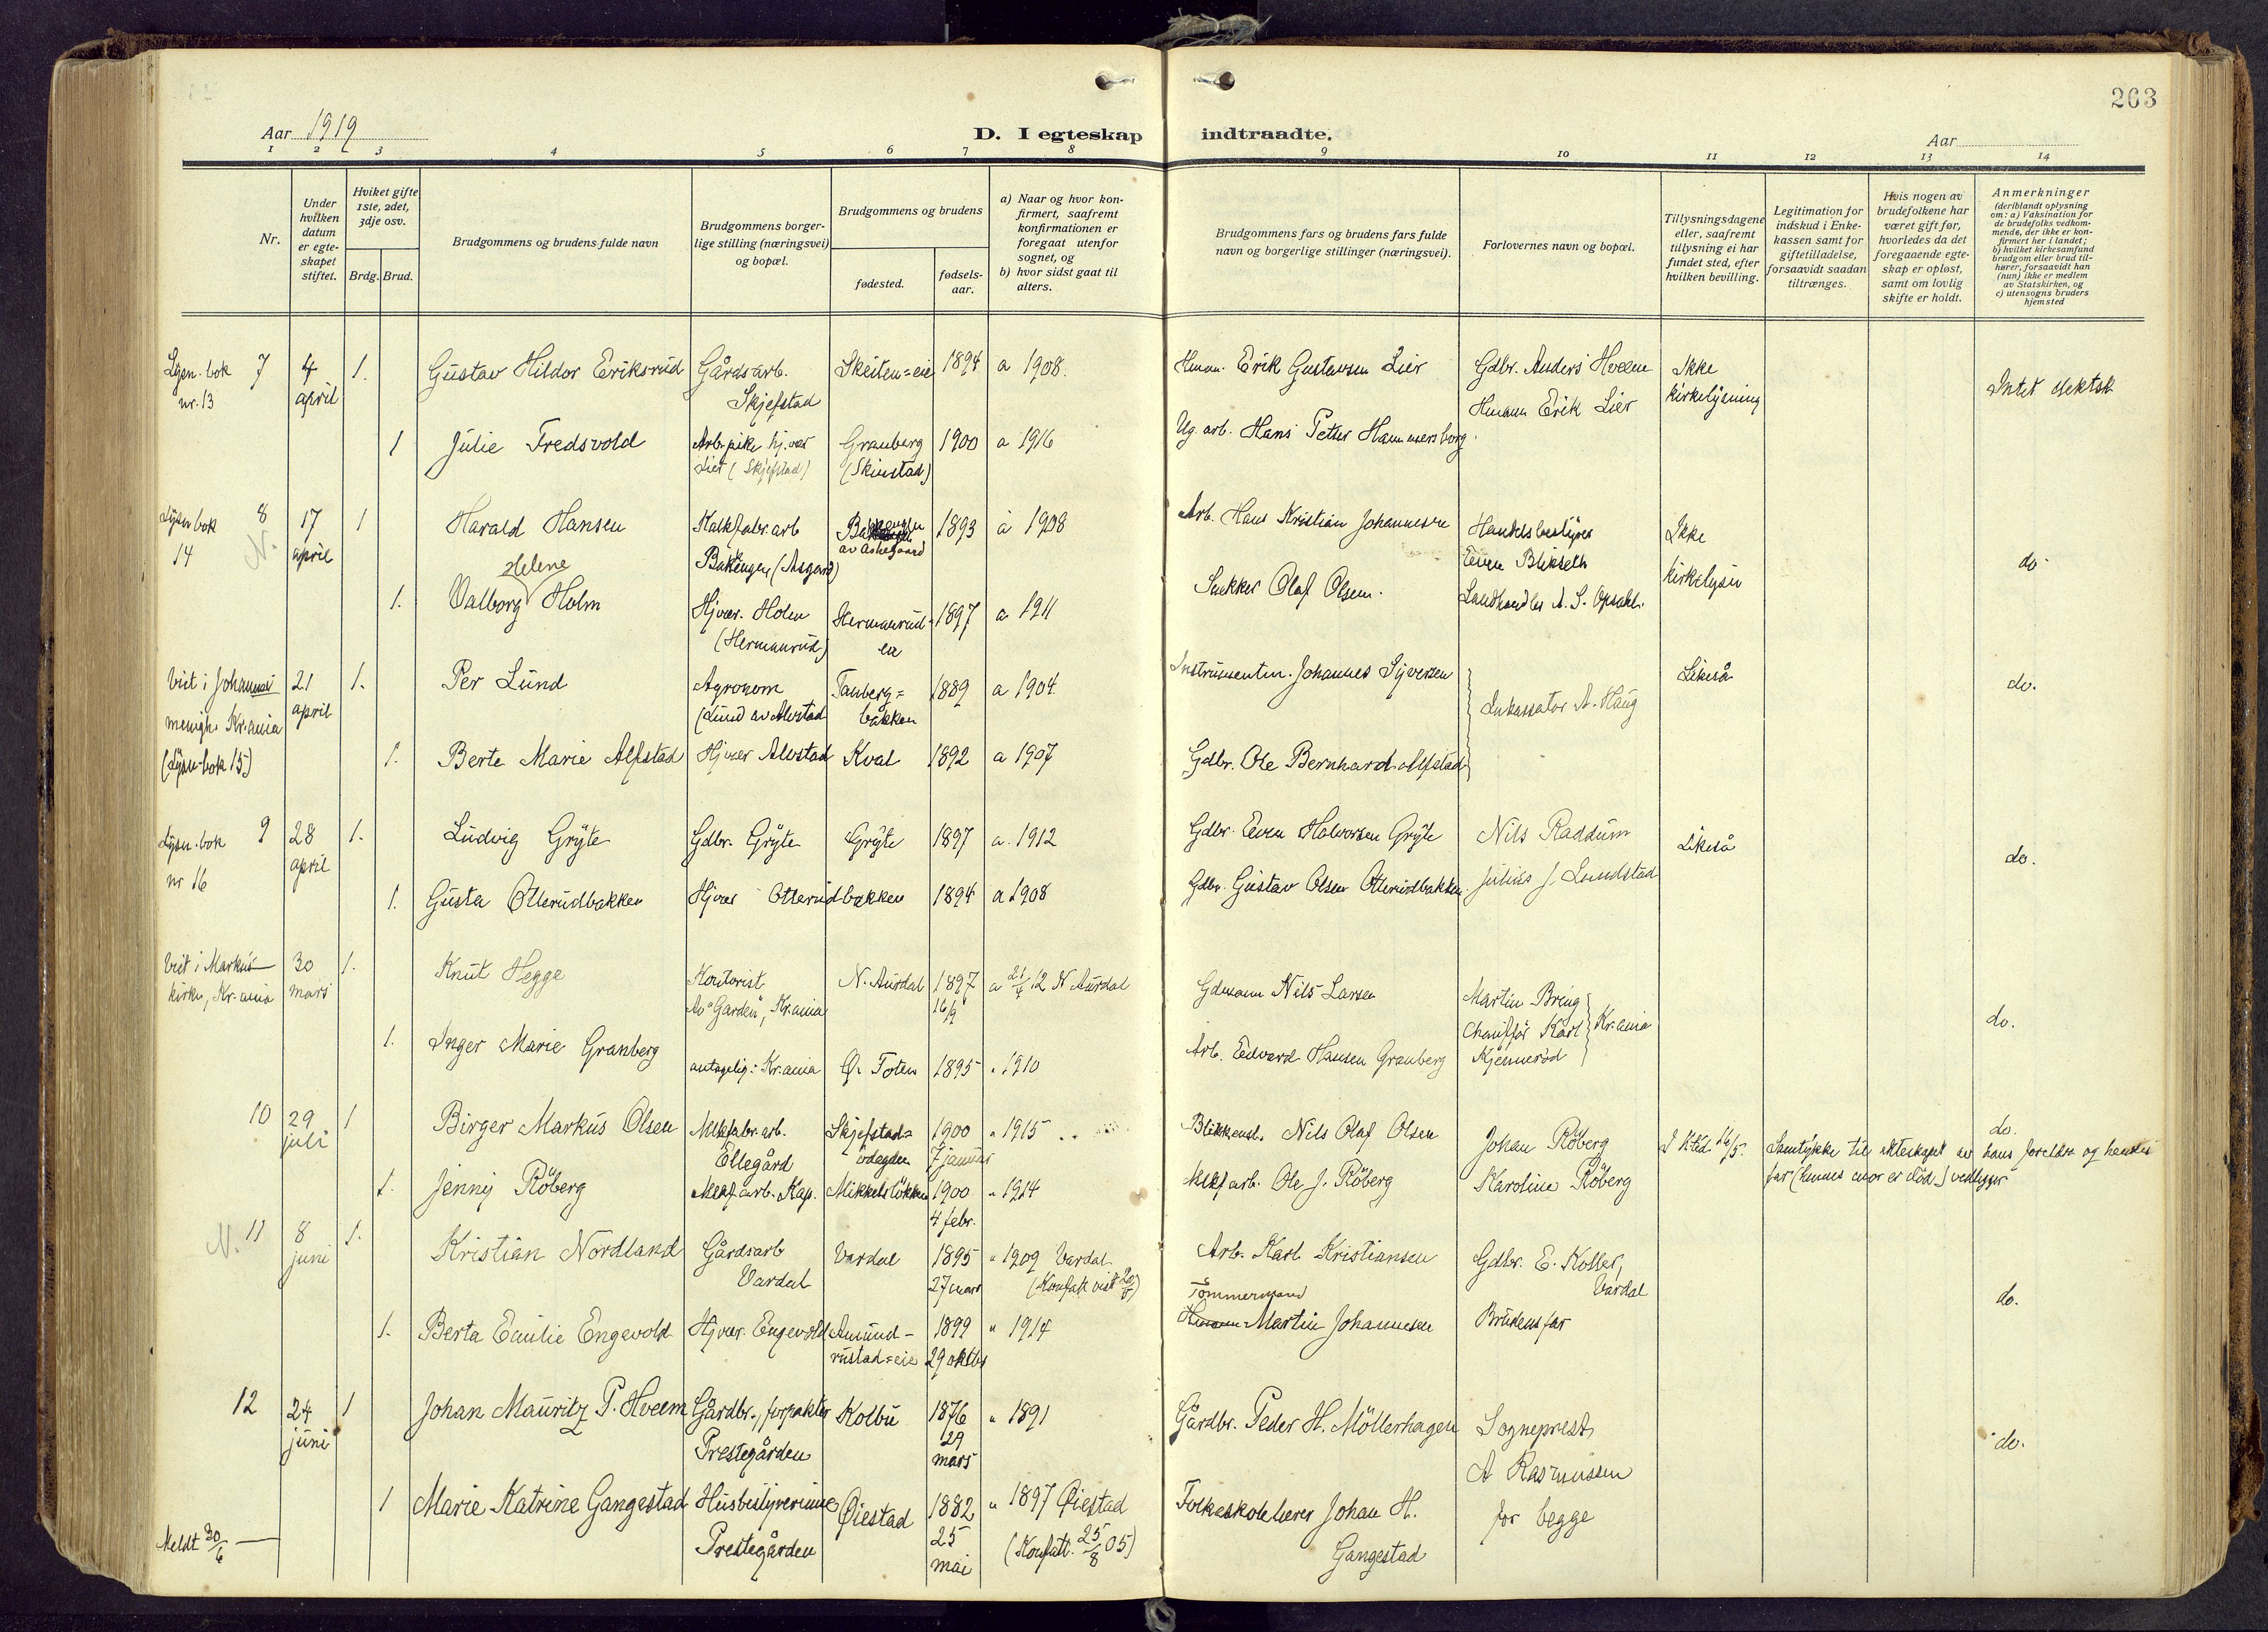 263
Aar 1919
D. I egteskap indtraadte.
Aar
1 2 3 4 5 6 7 8 9 10 11 12 13 14
Nr.
Under hvilken datum er egte-skapet stiftet.
Hviket gifte 1ste, 2det, 3dje osv.
Brdg. Brud.
Brudgommens og brudens fulde navn
Brudgommens borger-lige stilling (næringsvei) og bopæl.
Brudgommens og brudens
fødested.
fødsels-aar.
a) Naar og hvor kon-firmert, saafremt konfirmationen er foregaat utenfor sognet, og
b) hvor sidst gaat til alters.
Brudgommens fars og brudens fars fulde navn og borgerlige stillinger (næringsvei).
Forlovernes navn og bopæl.
Tillysningsdagene eller, saafremt tillysning ei har fundet sted, efter hvilken bevilling.
Legitimation for indskud i Enke-kassen samt for giftetilladelse, forsaavidt saadan tiltrænges.
Hvis nogen av brudefolkene har været gift før, hvorledes da det foregaaende egte-skap er opløst, samt om lovlig skifte er holdt.
Anmerkninger
(deriblandt oplysning om: a) Vaksination for de brudefolks vedkom-mende, der ikke er kon-firmert her i landet;
b) hvilket kirkesamfund brudgom eller brud til-hører, forsaavidt han (hun) ikke er medlem av Statskirken, og
c) utensogns bruders hjemsted
Lysn. bok nr. 13
7 4 april 1. Gustav Hildor Eriksrud Gårdsarb. Skjefstad Skeiten=eie 1894 a 1908. Hmm. Erik Gustavsen Lier Gdbr. Anders Hveem Ikke kirkelysning Intet slektsk.
Hmann Erik Lier
1 Julie Fredsvold Arb.pike hj.vær Lier (Skjefstad) Granberg (Skinstad) 1900 a 1916 Ug. arb. Hans Petter Hammersborg
Lysn bok 14
8 N. 17 april 1 Harald Hansen Kalkfabr. arb Bakengen (Asgard) av Askegaard 1893 a 1908 Arb. Hans Kristian Johannesen Handelsbestyrer Even Blikseth Ikke kirkelysn do
1. Valborg Helene Holm Hjvær. Holm (Hermanrud) Hermanrud= 1897 a 1911 Snekker Olaf Olsen. Landhandler A. S. Opsahl.
Viet i Johannes menigh. Kr.ania (Lysn-bok 15)
21 april 1. Per Lund Agronom (Lund av Alvstad Tanberg=bakken 1889 a 1904 Instrumentm. Johannes Syversen Inkassator A. Haug Likeså do.
1. Berte Marie Alfstad Hjvær Alvstad Kval 1892 a 1907 Gdbr. Ole Bernhard Alfstad
Lysn. bok nr 16
9 28 april 1. Ludvig Gryte Gdbr. Gryte Gryte 1897 a. 1912 Gdbr. Even Halvorsen Gryte Nils Raddum Likeså do.
1. Gusta Otterudbakken Hjvær Otterudbakken 1894 a 1908 Gdbr. Gustav Olsen Otterudbakken Julius J. Lundstad
Viet i Markus kirke, Kr.ania
30 mars 1. Knut Hegge Kontorist As "Garden", Kr.ania N. Aurdal 1897 16/9 a 21/4 12 N Aurdal Gdmann Nils Larsen Martin Bring do.
1. Inger Marie Granberg antagelig: Kr.ania Ø. Toten 1895 " 1910 Arb. Edvard Hansen Granberg Chauffør Karl Kjennerød Kr.ania
10 29 juli 1 Birger Markus Olsen Melkfabr. arb. Ellegård Skjefstad=ødegden 1900 7 januar " 1915 Blikkensl. Nils Olaf Olsen Johan Röberg 16/5. Samtykke til ekteskapet av hans foreldre og hendes far (hennes mor er død) vedlegger do.
1. Jenny Röberg Melkf arb. Kap. Mikkelsløkken 1900 4 febr. " 1914 Melkf arb. Ole J. Röberg Karoline Röberg
N. 11 8 juni 1. Kristian Nordland Gårdsarb Vardal Vardal 1895 27 mars " 1909 Vardal (Konfatt vist 20/5) Arb. Karl Kristiansen Gdbr. E. Koller, Vardal do.
1. Berta Emilie Engevold Hjvær. Engevold Amund-rustad=eie 1899 29 oktbr " 1914 Tømmermand Hmann Martin Johannesen Brudens far
12 24 juni 1 Johan Mauritz P. Hveem Gårdbr., forpakter Prestegården Kolbu 1876 29 mars " 1891 Gårdbr. Peder H. Möllerhagen Sogneprest A Rasmussen for begge do.
1 Marie Katrine Gangestad Husbestyrerinne Prestegården Øiestad 1882 25 mai " 1897 Øiestad (Konfatt. 25/8 05) Folkeskolelærer Johan H. Gangestad
Meldt 30/6